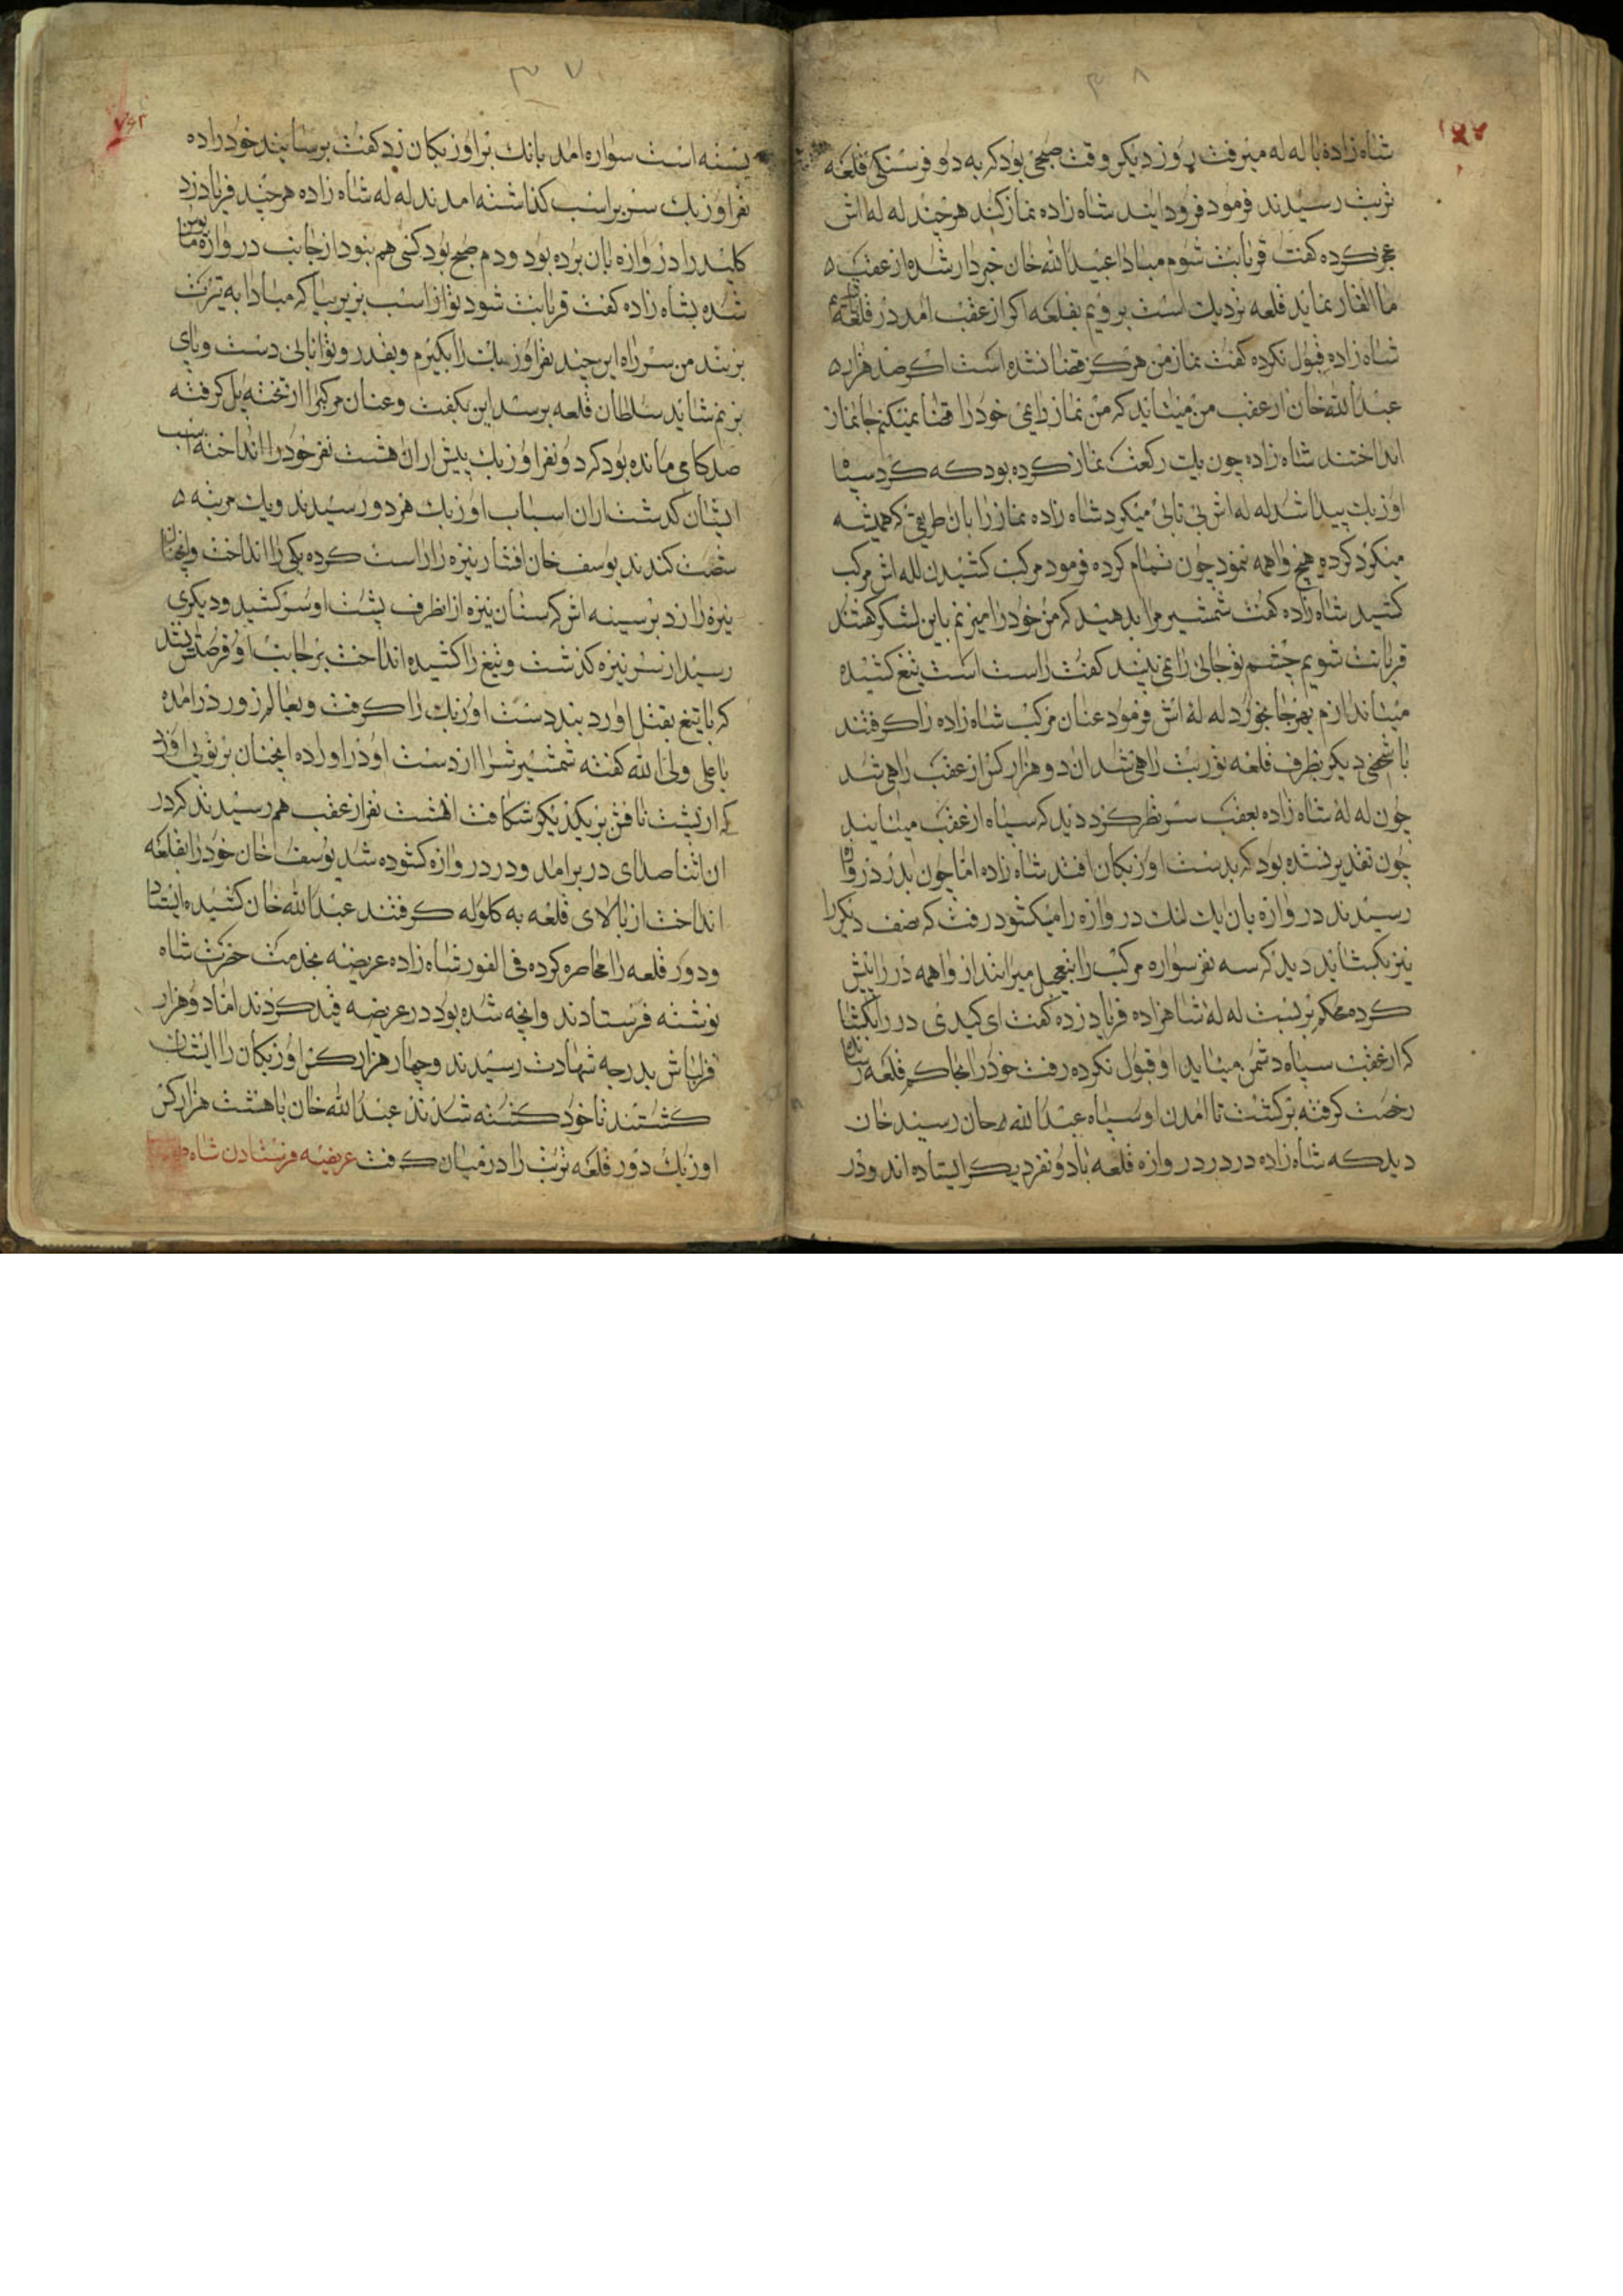 ۳۸
شاه زاده با له له میرفت روز دیکر وقت صبحی بود که به دو فرسنکی قلعه
تربت رسیدند فرمود فرود ایند شاه زاده نماز کند هر چند له له اش
عجز کرده کفت قربانت شوم مبادا عبیدالله خان خبردار شده از عقب
ما نماید قلعه نزدیک است برویم بقلعه اکر از عقب امد در قلعه
شاه زاده قبول نکرده کفت نماز من هرکز قضا نشده است اکر صد هزار
عبدالله خان از عقب من میاید که من نماز خود را قضا نمیکنم جانماز
انداختند شاه زاده چون یک رکعت نماز کرده بود که کرد سیاه
اوزبک پیدا شد له له اش بی تابی میکرد شاه زاده نماز را بان طریقی که همیشه
میکرد کرده هیچ واهمه ننمود چون تمام کرده فرمود مرکب کشیدن لله اش مرکب
کشید شاه زاده کفت شمشیر مرا بدهید که من خود را میزنم باین لشکر کفتند
قربانت شویم چشم تو جائی را نمی بیند کفت راست است تیغ کشیده
میاندازم بهر جا بخورد له له اش فرمود عنان مرکب شاه زاده را کرفتند
با شخصی دیکر بطرف قلعه توربت راهی شد ان دو هزار کس از عقب راهی شد
چون له له شاه زاده بعقب سر نظر کرد دید که سپاه از عقب میایند
چون تقدیر نشده بود که بدست اوزبکان افتد شاه زاده اما چون بدر دروازه
رسیدند دروازه بان یک لنک دروازه را میکشود رفت که نصف دیکر را
نیز بکشاید دید که سه نفر سواره مرکب را بتعجیل میرانند از واهمه در را پیش
کرده محکم بربست له له شاهزاده فریاد زده کفت ای کیدی در را بکشا
که از عقب سپاه دشمن میاید او قبول نکرده رفت خود را بحاکم قلعه رساند
رخصت کرفته برکشت تا امدن او سپاه عبدالله خان رسید خان
دید که شاه زاده در در دروازه قلعه با دو نفر دیکر ایستاده اند و در
۳۷
بسته است سواره امد بانک بر اوزبکان زد کفت برسانید خود را ده
نفر اوزبک سر بر اسب کذاشته امدند له له شاه زاده هر چند فریاد زد
کلید را دروازه بان برده بود و دم صبح بود کسی هم نبود از جانب دروازه مایوس
شده بشاه زاده کفت قربانت شود تو از اسب بزیر بیا که مبادا به تیرت
بزنند من سر راه این چند نفر اوزبک را بکیرم و بقدر توانائی دست و پای
بزنم شاید سلطان قلعه برسد این بکفت و عنان مرکب را از تخته پل کرفته
صد کامی مانده بود که دو نفر اوزبک پیش از ان هشت نفر خود را انداخته اسب
ایشان کذشت از ان اسباب اوزبک هر دو رسیدند و یک مرتبه
شصت کندند یوسف خان افشار نیزه را راست کرده یکی را انداخت و انچنان
نیزه را زد بر سینه اش که سنان نیزه از انطرف پشت او سر کشید و دیکری
رسید از سر نیزه کذشت و تیغ را کشیده انداخت بر جانب او فرصتش ندید
که با تیغ بقتل اورد بند دست اوزبک را کرفت و بعالم زور در امده
یا علی ولی الله کفته شمشیرش را از دست او در اورده انچنان بر او زد
که از پشت تا نافش بر یکدیکر شکافت هشت نفر از عقب هم رسیدند که در
ان اثنا صدای در برامد و در دروازه کشوده شد یوسف خان خود را بقلعه
انداخت از بالای قلعه به کلوله کرفتند عبدالله خان کشیده ایستاد
و دور قلعه را محاصره کرده فی الفور شاه زاده عریضه بخدمت حضرت شاه
نوشته فرستادند وانچه شده بود در عریضه قید کردند اما دو هزار
قزلباش بدرجه شهادت رسیدند و چهار هزار کس اوزبکان را ایشان
کشتند تا خود کشته شدند عبدالله خان با هشت هزار کس
اوزبک دور قلعه تربت را در میان کرفت عریضه فرستادن شاه